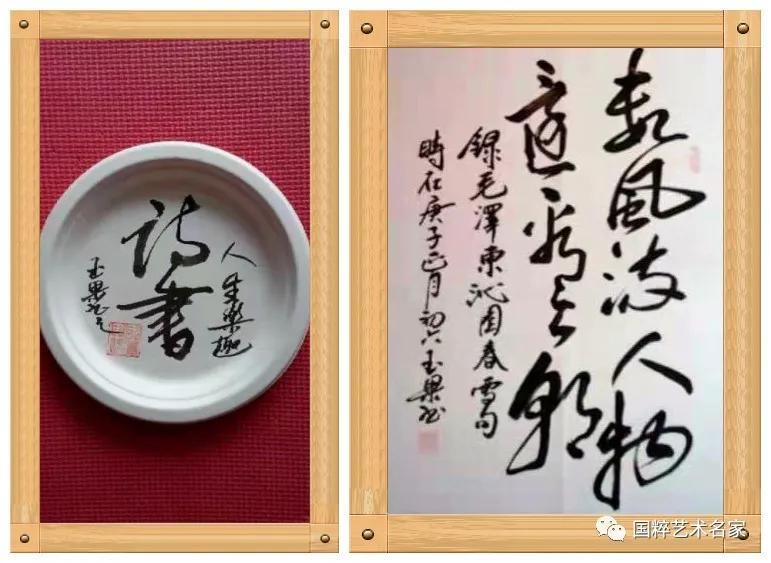 人生樂趣
诗書
玉果
数風流人物
還看今朝
録毛澤東沁园春雪句
時在庚子正月初六玉果
国粹艺术名家